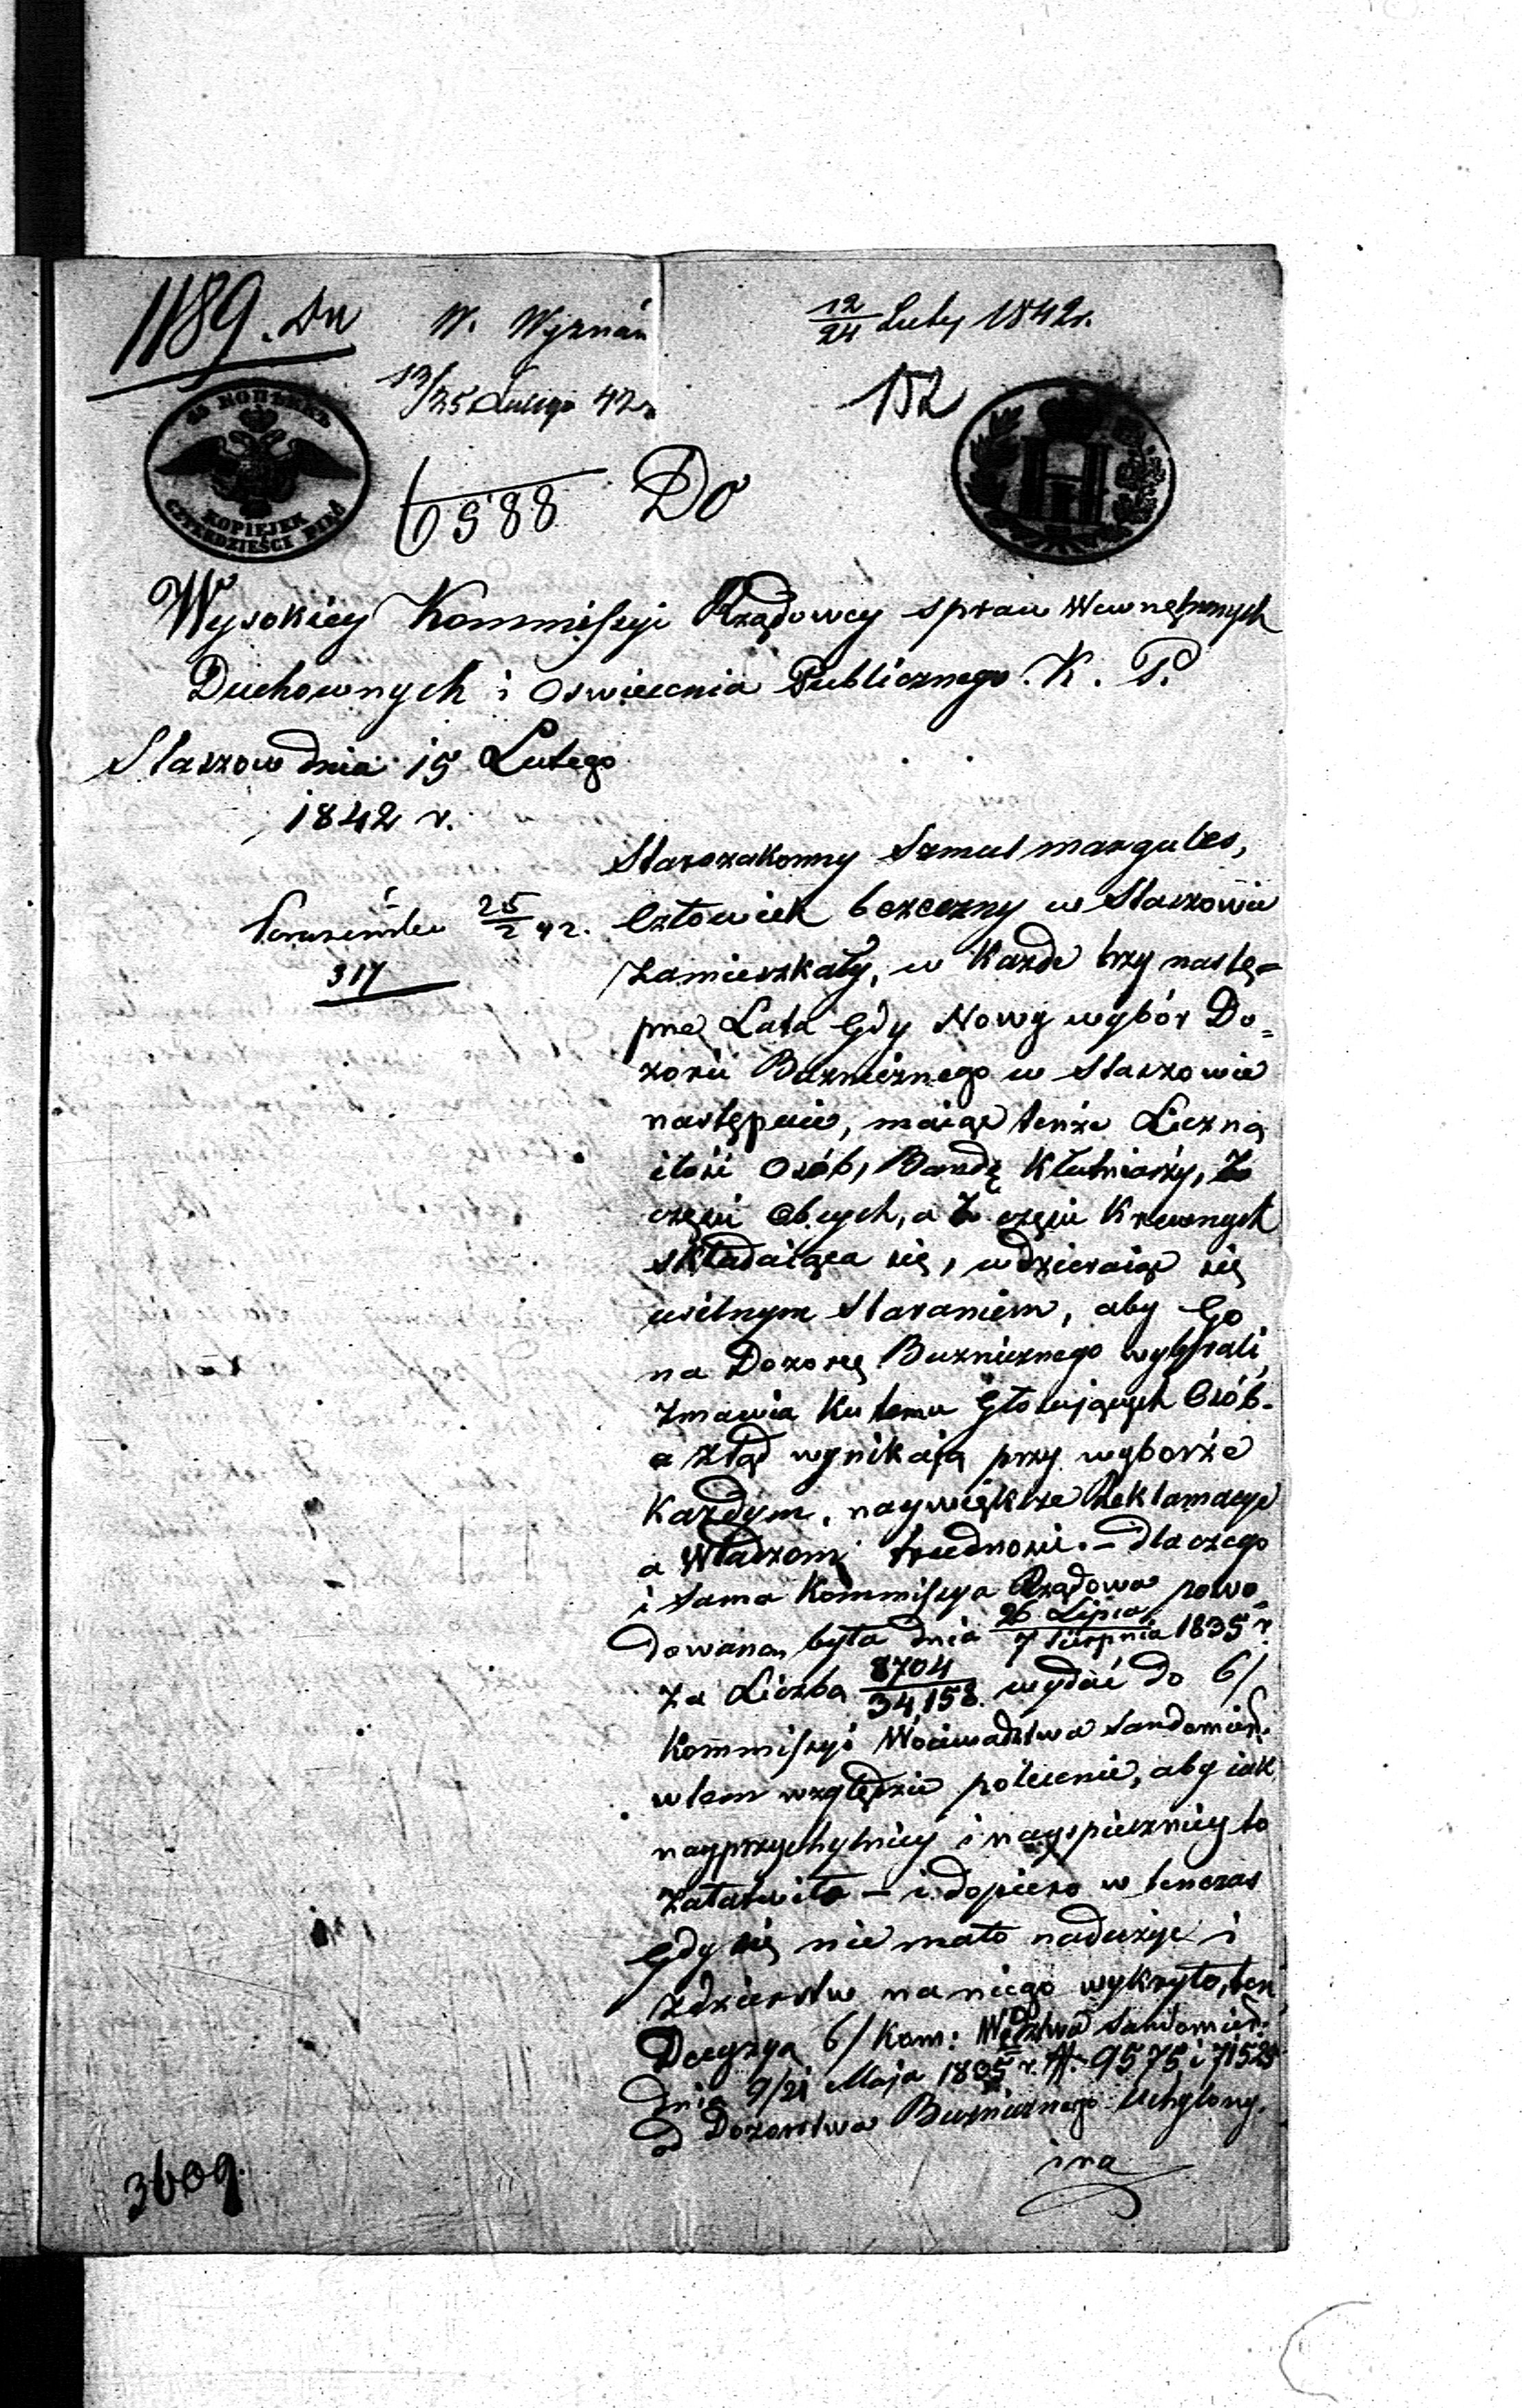 1189. Du W. Wyznań 12/24 Luty 1842 r.
13/25 Lutego 42 r
152
45 КОПѢЕКЪ
KOPIEJEK
CZTERDZIEŚCI PIĘĆ
H
6588
Do
Wysokiey Kommissyi Rządowey spraw Wewnętrznych
Duchownych i Oswiecenia Publicznego. K. P.
Staszow dnia 15 Lutego
1842 r.
Starozakonny Szmul margules,
25/2 42.
317
Człowiek bezczny w Staszowie
Zamieszkały, w Każde trzy nastę=
pne Lata Gdy Nowy wybór Do=
zoru Bużnicznego w Staszowie
następuie, maiąc tenże Liczną
ilość Osób, Bandę Kłutniarzy, Z
częsci Obcych, a Z częsci Krewnych
składaiąca się, wdzieraiąc się
usilnym Staraniem, aby Go
na Dozorcę Bużnicznego wybrali,
Zmawia Ku temu Głosujących Osób.
a Ztąd wynikaią przy wyborze
Każdym, naywiększe Reklamacye
a Władzom trudnosci. – dla czego
i Sama Kommissya Rządowa powo=
dowana była dnia 26 Lipca/7 Sierpnia 1835 r.
Za Liczba 8704/34,158. wydać do 6/
Kommissyi Woiewodztwa Sandomier.
w tem względzie polecenie, aby iak
nayprzychylniey i nayspieszniey to
Załatwiła – i dopiero w tenczas
Gdy się nie mało nadużyć i
zdzierstw na niego wykryło, ten
Decyzya 6/ Kom: Wdztwa Sandomier.
dnia 9/21 Maja 1835 r. N. 9575 i 71525
od Dozorstwa Bużnicznego Uchylony.
ina
3609.